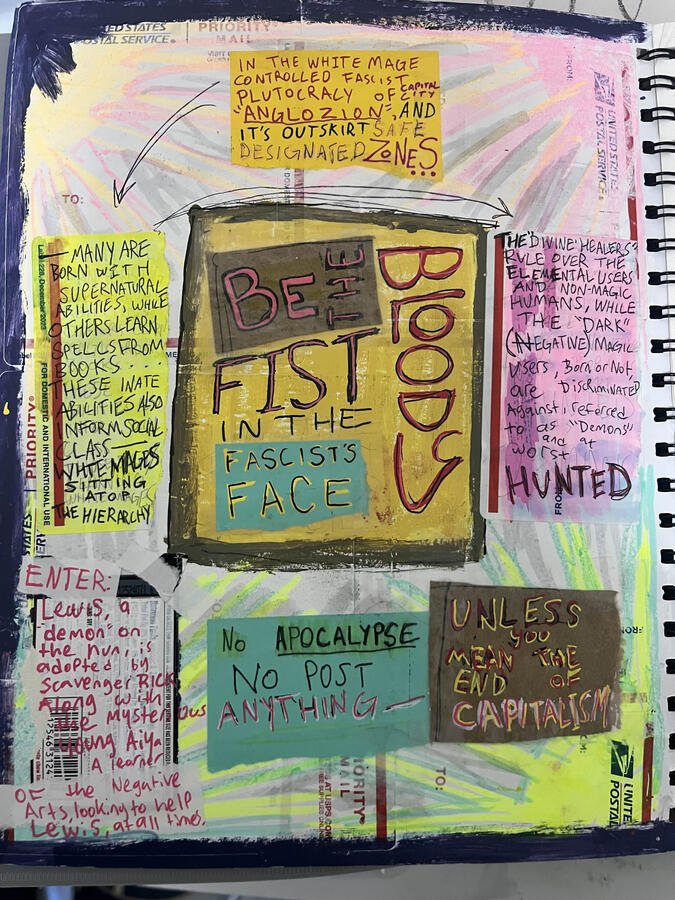 UNITED STATES
POSTAL SERVICE®
PRIORITY
MAIL
IN THE WHITE MAGE
CONTROLLED FASCIST
PLUTOCRACY OF CAPITAL CITY
"ANGLOZION", AND
IT'S OUTSKIRT SAFE
DESIGNATED ZONES...
FROM:
UNITED STATES
POSTAL SERVICE®
TO:
MANY ARE
BORN WITH
SUPERNATURAL
ABILITIES, WHILE
OTHERS LEARN
SPELLS FROM
BOOKS....
THESE INATE
ABILITIES ALSO
INFORM SOCIAL
CLASS —
WHITE MAGES
SITTING
ATOP
THE HIERARCHY
FOR DOMESTIC AND INTERNATIONAL USE
PRIORITY®
BE THE
BLOODY
FIST
IN THE
FASCIST'S
FACE
THE "DIVINE HEALERS"
RULE OVER THE
ELEMENTAL USERS
AND NON-MAGIC
HUMANS, WHILE
THE "DARK"
(NEGATIVE) MAGIC
Users, Born or Not,
are Discriminated
Against, referred
to as "Demons"
and at
worst
HUNTED
ENTER:
Lewis, a
"demon" on
the run, is
adopted by
Scavenger RICK,
Along with
the mysterious
young Aiya
A learner
OF the Negative
Arts, looking to help
Lewis, at all times.
12546 3124
No APOCALYPSE
NO POST
ANYTHING —
UNLESS
you
MEAN THE
END OF
CAPITALISM
TO:
PRIORITY®
MAIL
UNITED
POSTAL